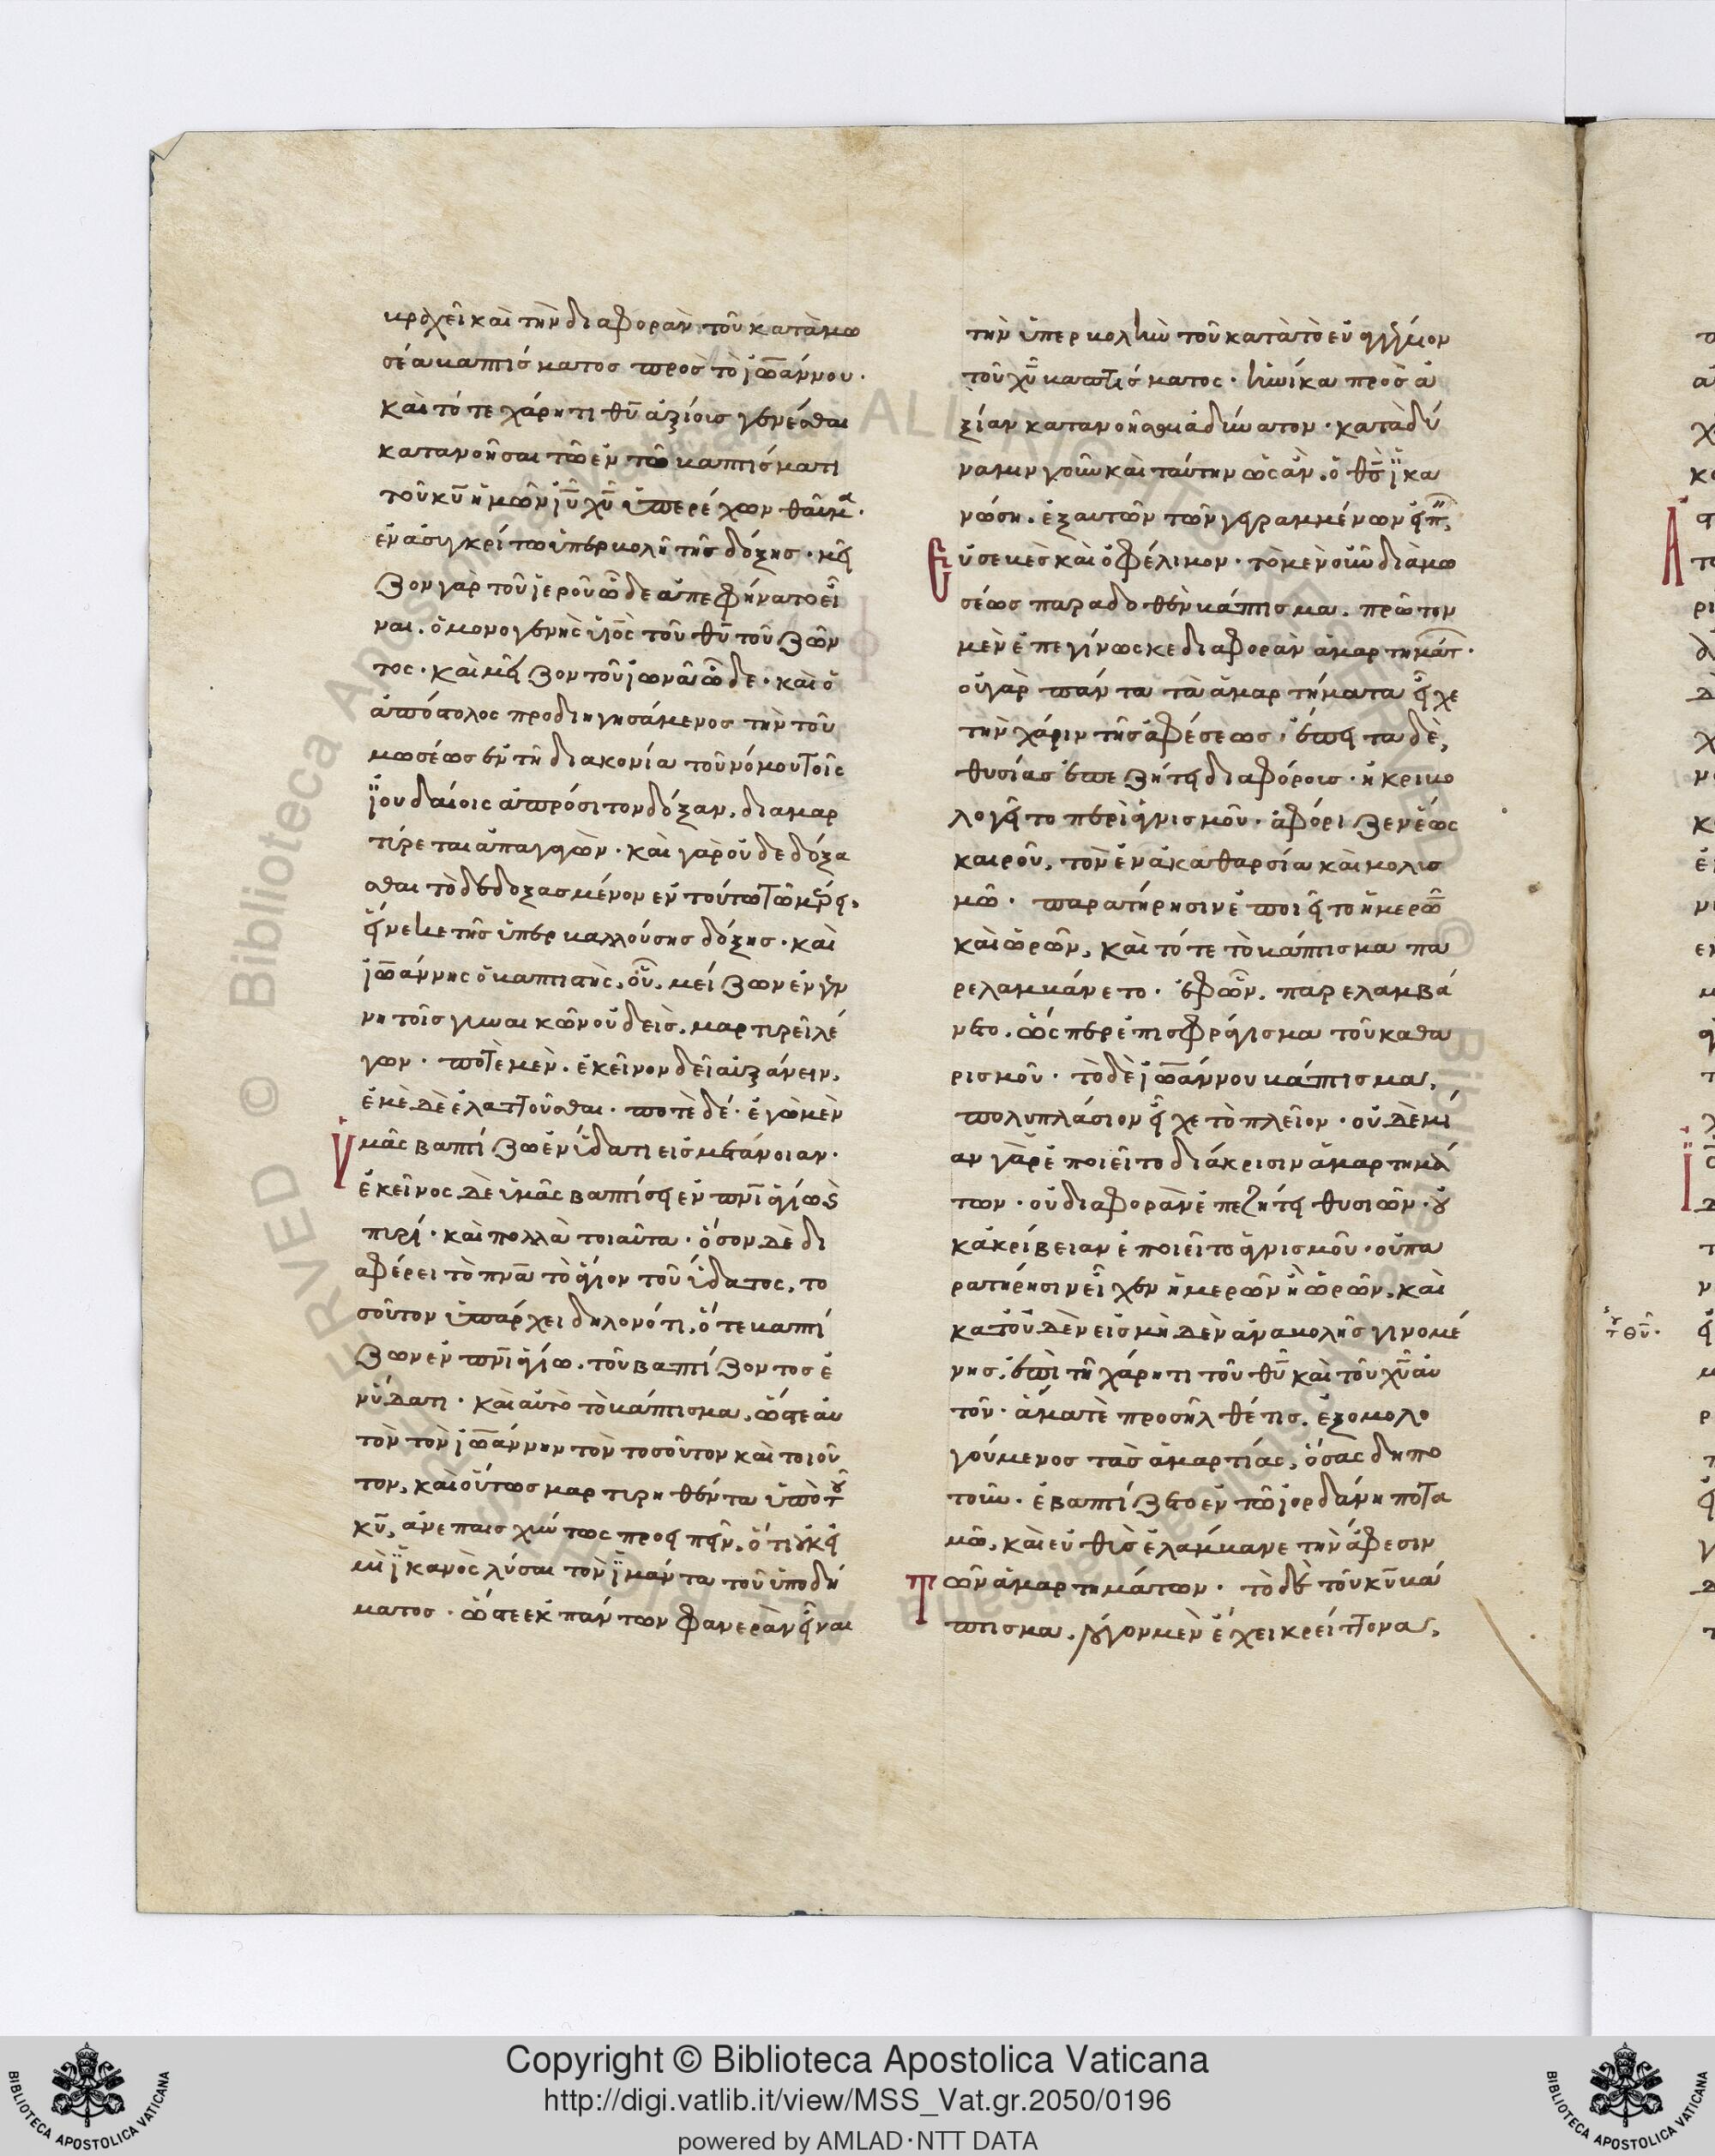 βραχεῖ καὶ τὴν διαφορὰν τοῦ κατὰ μω
σέα βαπτίσματος πρὸς τὸ ἰωάννου·
καὶ τότε χάρητι θῦ ἀξίοις γενέσθαι
κατανοῆσαι τῶ ἐν τῶ βαπτίσματι
τοῦ κῦ ἡμῶν ἰῦ χῦ ὑπερέχων θαῦμα·
ἐν ἀσυγκρίτω ὑπερβολῆ τῆς δόξης· μεῖ
ζον γὰρ τοῦ ἱεροῦ ὧδε ἀπεφήνατο εἶ
ναι. ὁ μονογενὴς υἱὸς τοῦ θῦ τοῦ ζῶν
τος· καὶ μεῖζον τοῦ ἰωνᾶ ὧδε· καὶ ὁ
ἀπόστολος προδιηγησάμενος τὴν τοῦ
μωσέως ἐν τῆ διακονία τοῦ νόμου τοῖς
ἰουδαίοις ἀπρόσιτον δόξαν, διαμαρ
τύρεται ἀπαγγῶν· καὶ γὰρ οὐ δεδόξα
σθαι τὸ δεδοξασμένον ἐν τούτω τῶ μέρει,
εἵνεκε τῆς ὑπερβαλλούσης δόξης· καὶ
ἰωάννης ὁ βαπτιστὴς, οὗ, μείζων ἐν γεν
νητοῖς γυναικῶν οὐδεὶς, μαρτυρεῖ λέ
γων· ποτὲ μὲν, ἐκεῖνον δεῖ αὐξάνειν,
ἐμὲ δὲ ἐλαττοῦσθαι· ποτὲ δέ· ἐγὼ μὲν
ὑμᾶς βαπτίζω ἐν ὕδατι εἰς μετάνοιαν·
ἐκεῖνος δὲ ὑμᾶς βαπτίσει ἐν πνῖ ἁγίω καὶ
πυρί· καὶ πολλὰ τοιαῦτα· ὅσον δὲ δι
αφέρει τὸ πνᾶ τὸ ἅγιον τοῦ ὕδατος, το
σοῦτον ὑπάρχει δηλονότι, ὅ τε βαπτί
ζων ἐν πνῖ ἁγίω, τοῦ βαπτίζοντος ἐ
ν ὕδατι· καὶ αὐτὸ τὸ βάπτισμα, ὥστε αὐ
τὸν τὸν ἰωάννην τὸν τοσοῦτον καὶ τοιοῦ
τον, καὶ οὕτως μαρτυρηθέντα ὑπὸ τοῦ
κῦ, ἀνεπαισχύντως προειπεῖν, ὅτι οὐκ εἰ
μὶ ἱκανὸς λύσαι τὸν ἱμάντα τοῦ ὑποδή
ματος· ὥστε ἐκ πάντων φανερὰν εἶναι
τὴν ὑπερβολὴν τοῦ κατὰ τὸ εὐαγγέλιον
τοῦ χῦ βαπτίσματος· ἡνίκα πρὸς ἀ
ξίαν κατανοῆσαι ἀδύνατον· κατὰ δύ
ναμιν γοῦν καὶ ταύτην ὡς ἂν, ὁ θσ ἱκα
νώση, ἐξ αὐτῶν τῶν γεγραμμένων εἰπ,
εὐσεβὲς καὶ ὀφέλιμον· τὸ μὲν οὖν διὰ μω
σέως παραδοθὲν βάπτισμα, πρῶτον
μὲν ἐπεγίνωσκε διαφορὰν ἁμαρτημάτ·
οὐ γὰρ πάντα τὰ ἁμαρτήματα εἶχε
τὴν χάριν τῆς ἀφέσεως, ἔπειτα δὲ,
θυσίας ἐπεζήτει διαφόροις· ἠκριβο
λογεῖτο περὶ ἁγνισμοῦ· ἀφόριζεν ἕως
καιροῦ, τὸν ἐν ἀκαθαρσία καὶ μολυσ
μῶ· παρατήρησιν ἐποιεῖτο ἡμερῶν
καὶ ὡρῶν, καὶ τότε τὸ βάπτισμα πα
ρελαμβάνετο· ἐφ᾽ ὧν, παρελαμβά
νετο, ὥσπερ ἐπισφράγισμα τοῦ καθα
ρισμοῦ· τὸ δὲ ἰωάννου βάπτισμα,
πολυπλάσιον εἶχε τὸ πλεῖον· οὐδὲ μί
αν γὰρ ἐποιεῖτο διάκρισιν ἁμαρτημά
των· οὐ διαφορὰν ἐπεζήτει θυσιῶν· οὐ
κ ἀκρίβειαν ἐποιεῖτο ἁγνισμοῦ· οὐ πα
ρατήρησιν εἶχεν ἡμερῶν ἢ ὡρῶν, καὶ
κατ᾽ οὐδὲν εἰς μηδὲν ἀναβολῆς γινομέ
νης, ἐπὶ τῆ χάρητι τοῦ θῦ καὶ τοῦ χῦ αὐ
τοῦ· ἅμα τὲ προσῆλθέ τις, ἐξομολο
γούμενος τὰς ἁμαρτίας, ὅσας δηπο
τοῦν· ἐβαπτίζετο ἐν τῶ ἰορδάνη ποτα
μῶ, καὶ εὐθὺς ἐλάμβανε τὴν ἄφεσιν
τῶν ἁμαρτημάτων· τὸ δὲ τοῦ κῦ βά
πτισμα, λόγον μὲν ἔχει κρείττονα,
Copyright © Biblioteca Apostolica Vaticana
http://digi.vatlib.it/view/MSS_Vat.gr.2050/0196
powered by AMLAD·NTT DATA
BIBLIOTECA APOSTOLICA VATICANA
BIBLIOTECA APOSTOLICA VATICANA